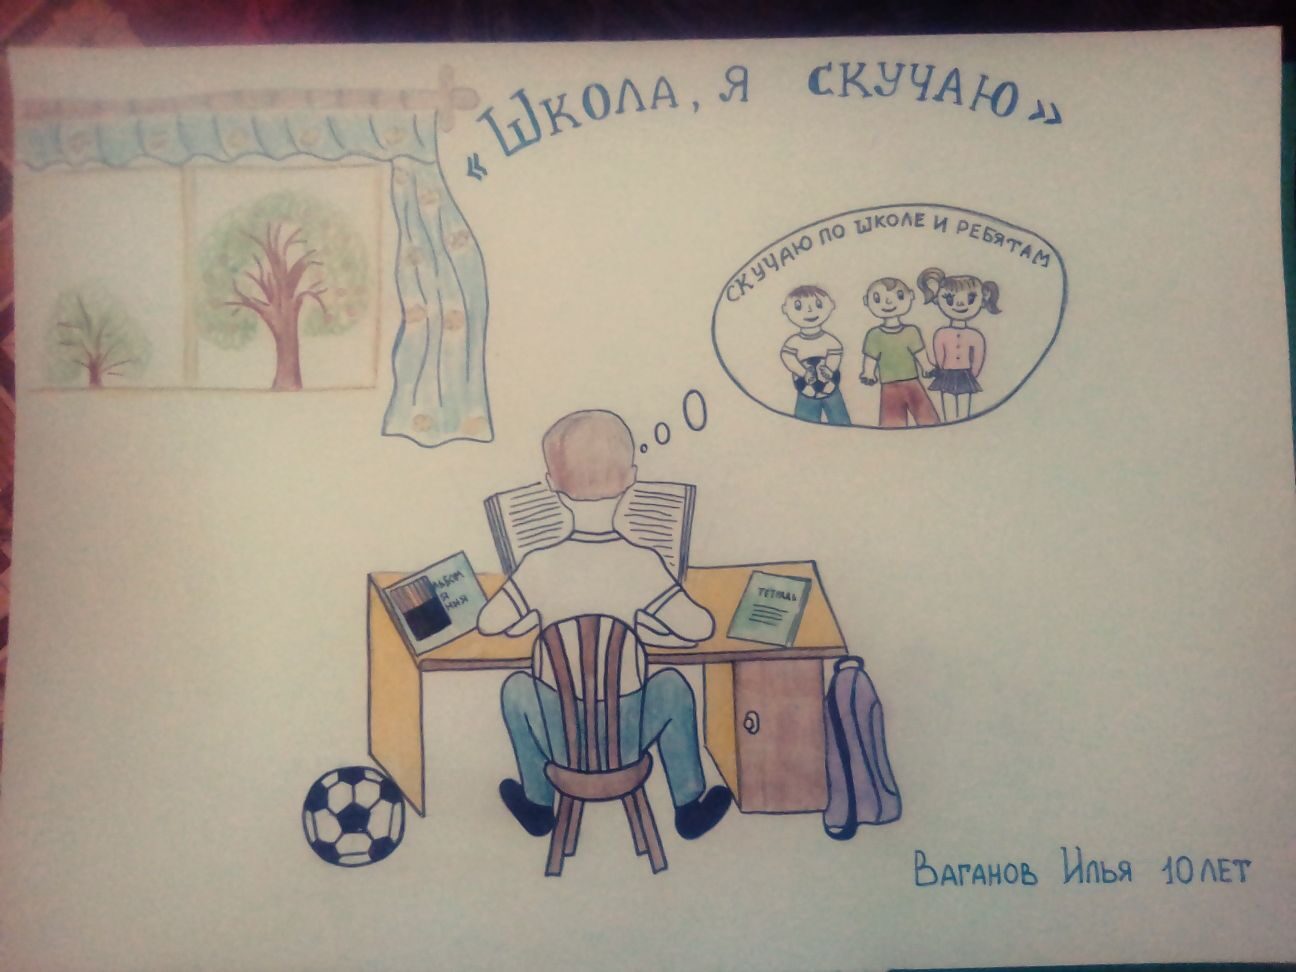 «Школа, я скучаю»
СКУЧАЮ ПО ШКОЛЕ И РЕБЯТАМ
ТЕТРАДЬ
Ваганов Илья 10 лет